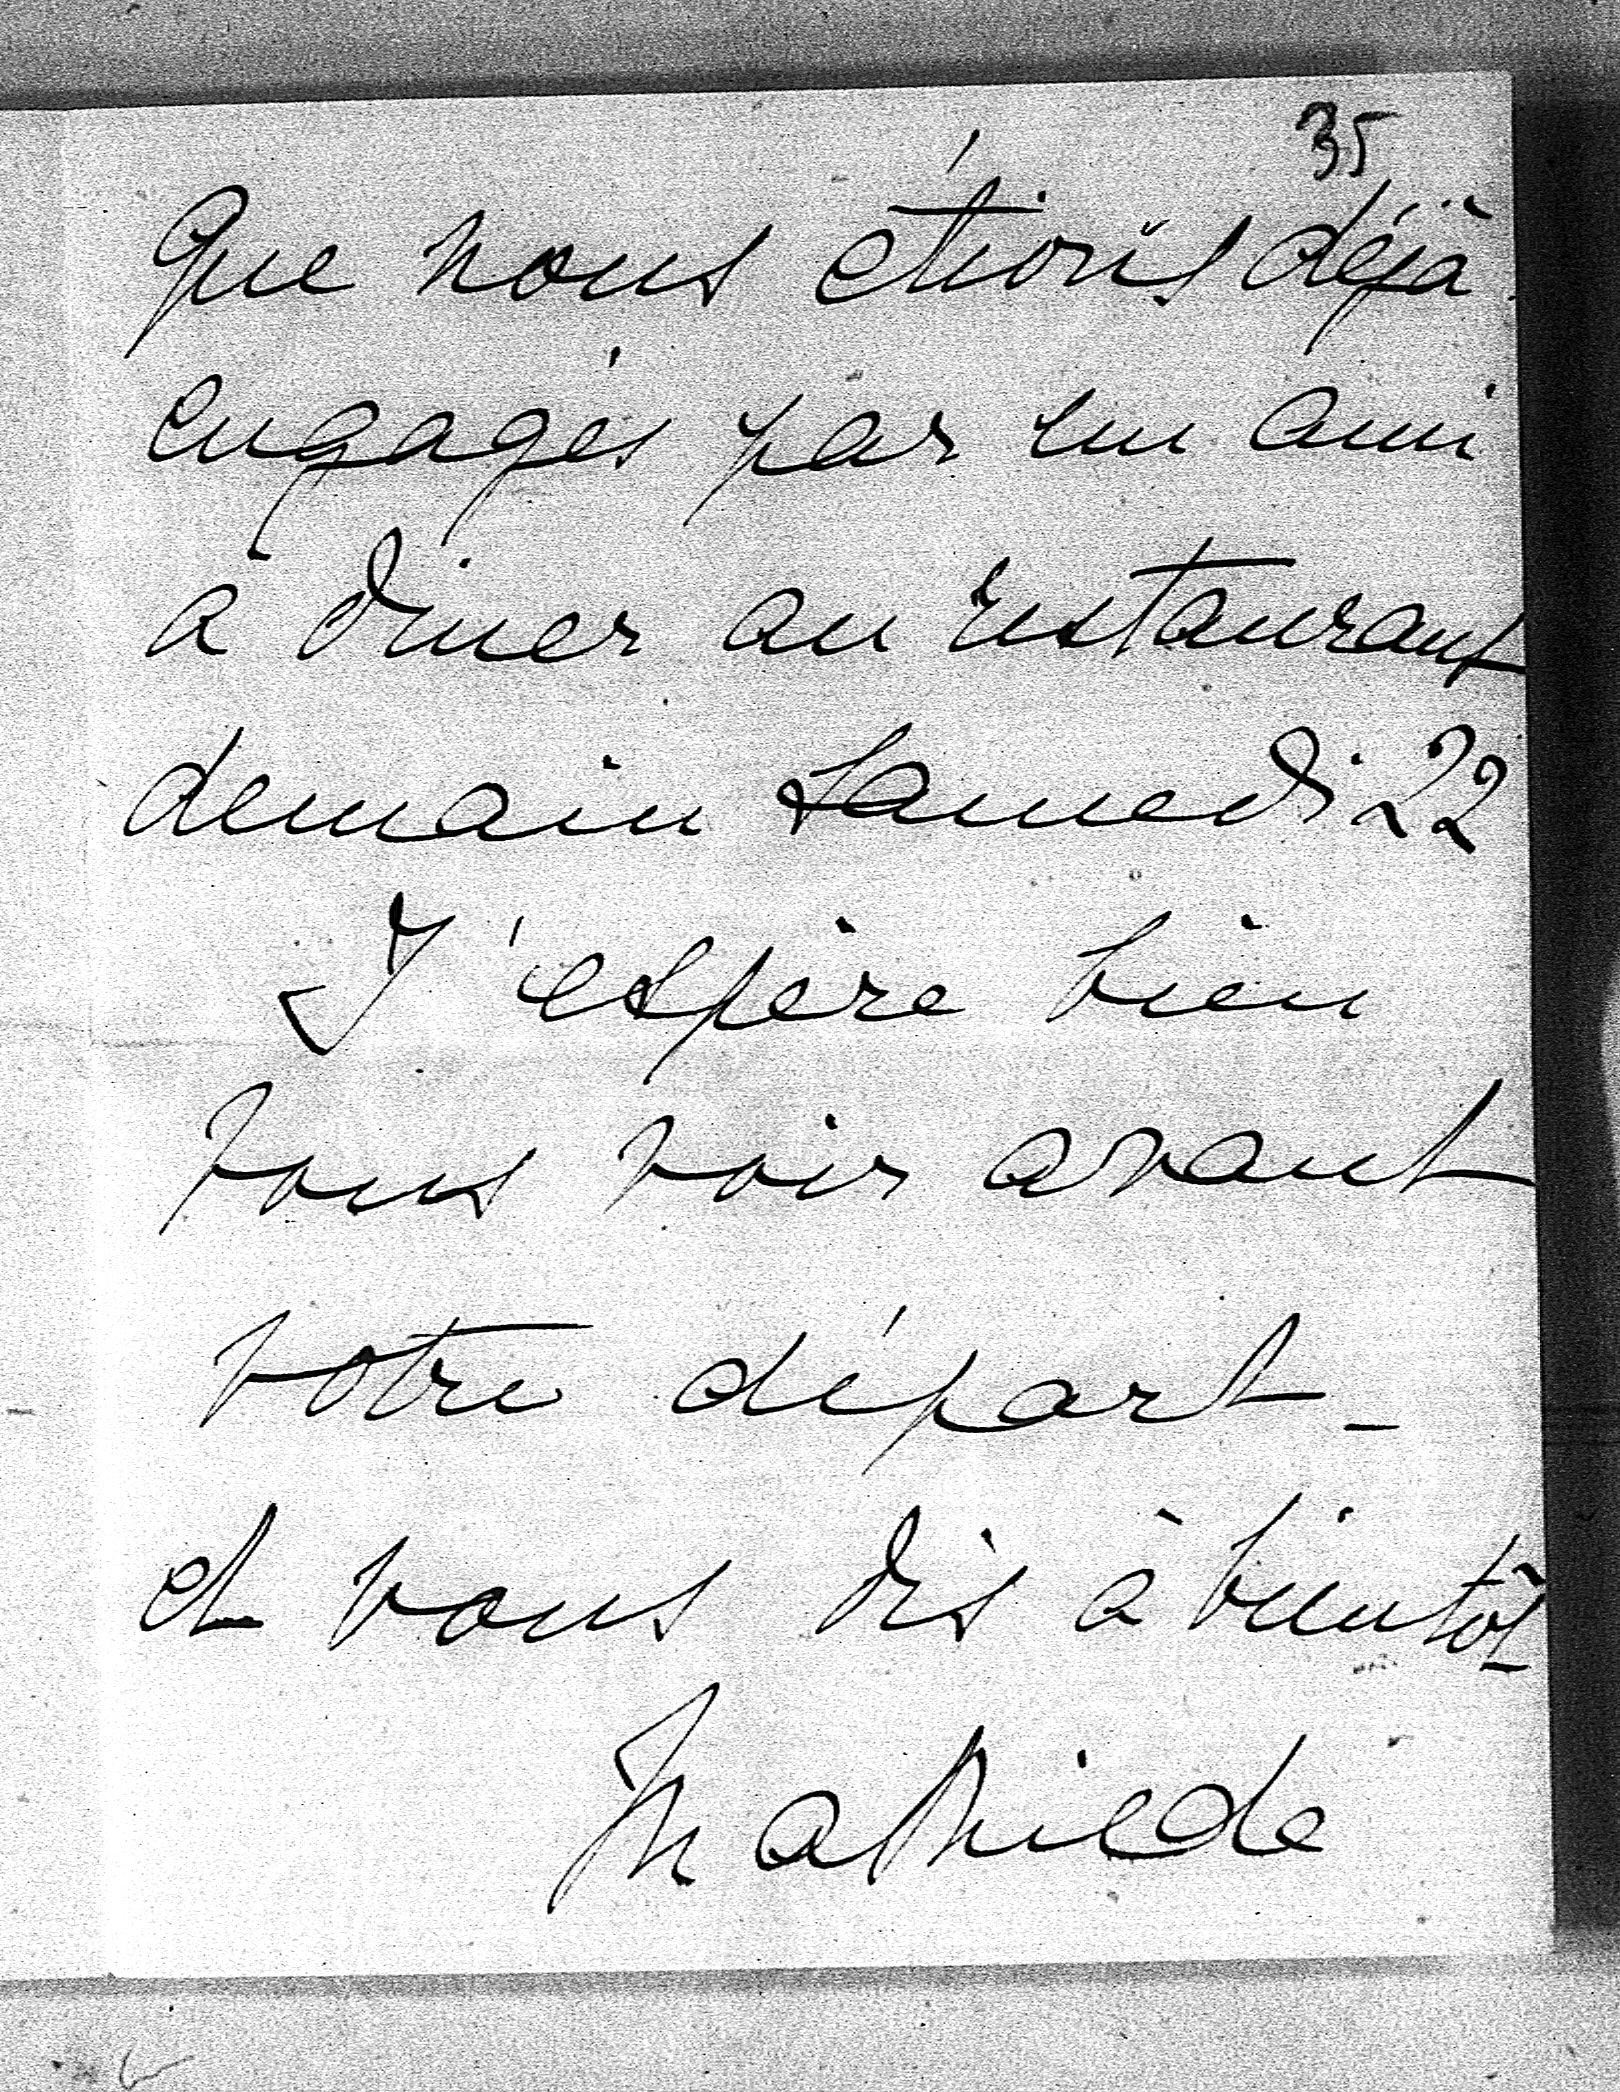 35
Que nous étions déjà
engagés par un ami
a diner au restaurant
demain Samedi 22
J'espère bien
vous voir avant
votre départ -
et vous dis à bientôt
Mathilde